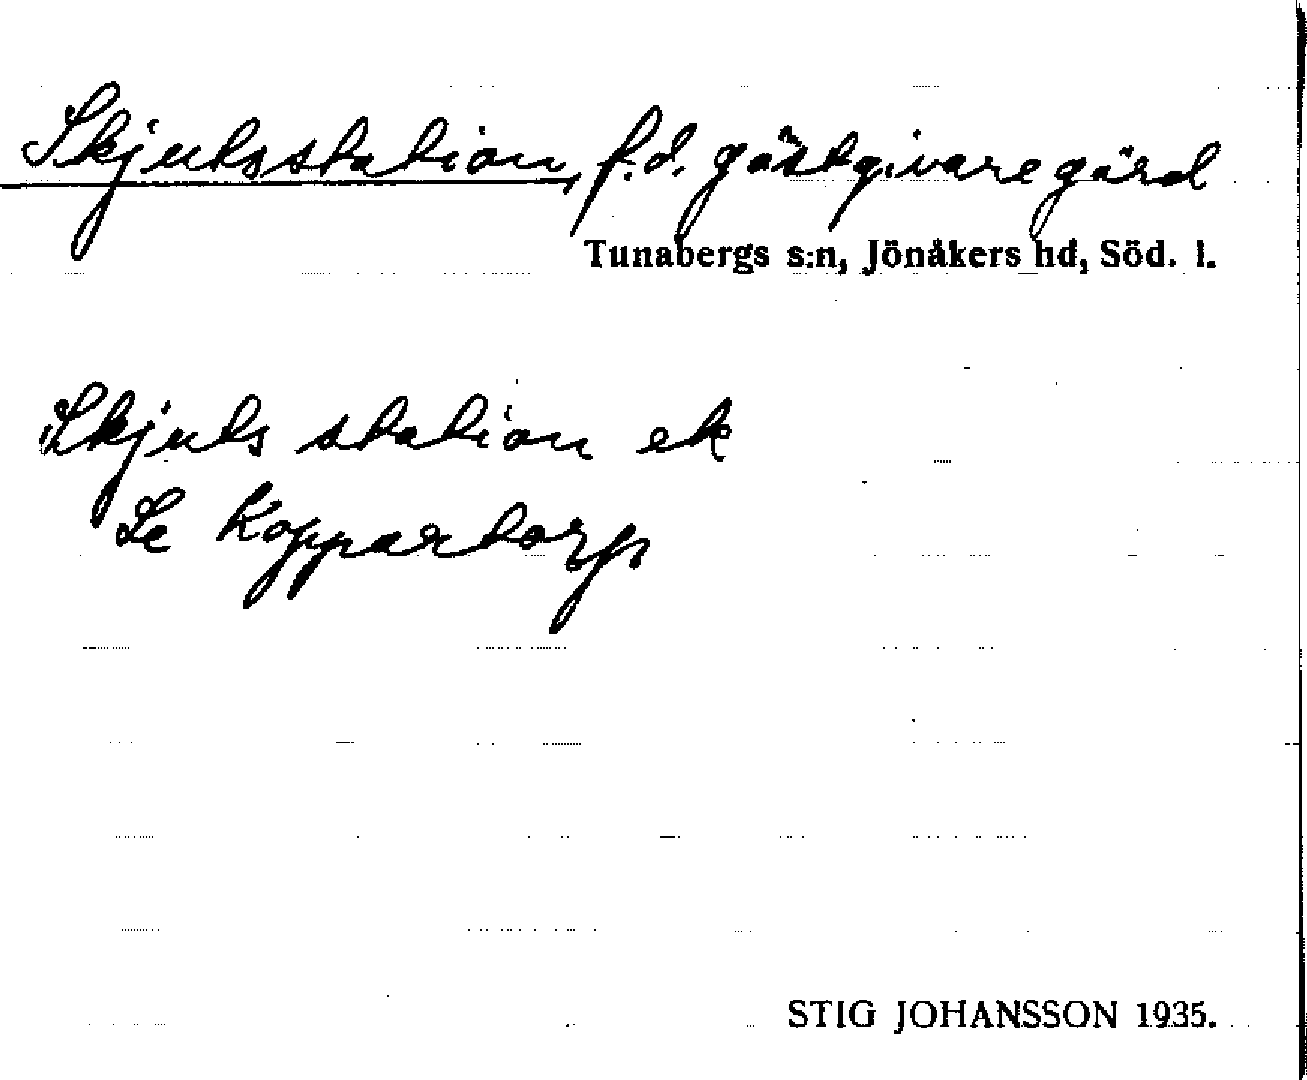 Skjutsstation, f.d. gästgivaregård
Tunabergs s:n, Jönåkers hd, Söd. l.
Skjuts station ek
Se Koppartorp
STIG JOHANSSON 1935.